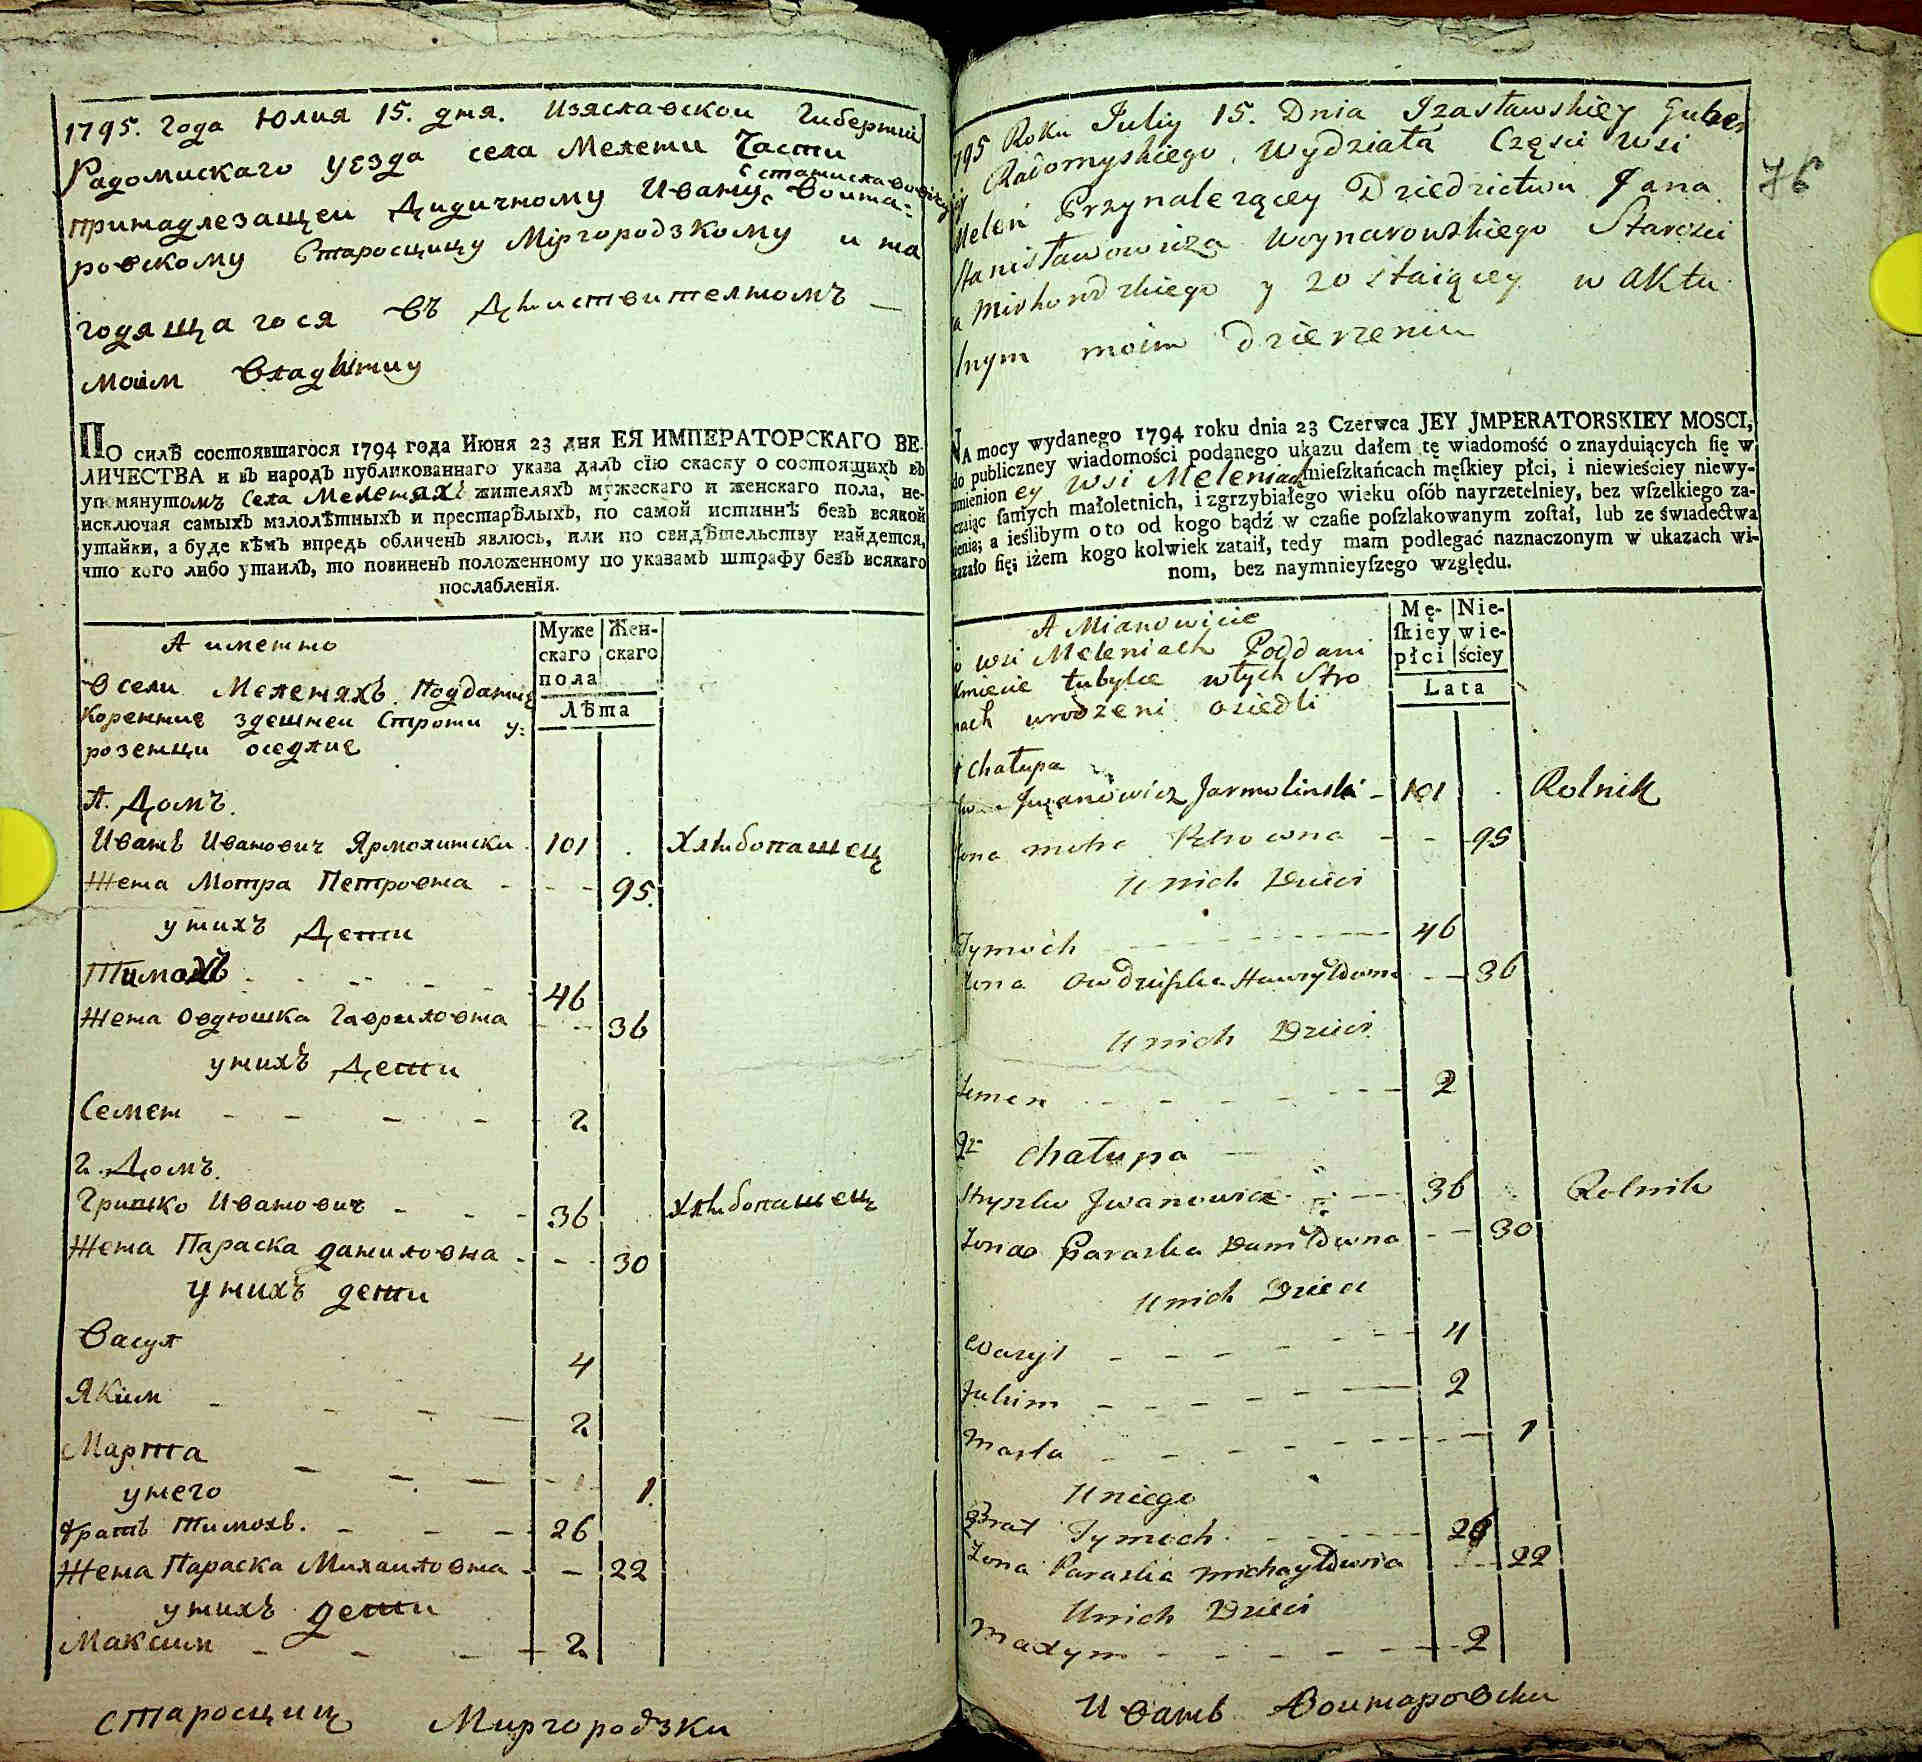 1795. Года Юлия 15. дня. Изяславской Губернии
Радомискаго уезда села Мелени Части
Станиславовичу
принадлезащеи Дидичному Ивану Воина-
ровскому Старосцицу Міргородзкому и на
годящагося въ Дѣиствителномъ —
моим Владѣнии
ПО силѣ состоявшагося 1794 года Июня 23 дня ЕЯ ИМПЕРАТОРСКАГО ВЕ-
ЛИЧЕСТВА и въ народъ публикованнаго указа далъ сїю скаску о состоящихъ въ
упомянутомъ Села Меленяхъ жителяхъ мужескаго и женскаго пола, не-
исключая самыхъ малолѣтныхъ и престарѣлыхъ, по самой истиннѣ безъ всякой
утайки, а буде кѣмъ впредь обличенъ явлюсь, или по свидѣтельству найдется,
что кого либо утаилъ, то повиненъ положенному по указамъ штрафу безъ всякаго
послабленїя.
А именно
Муже
скаго
пола
Жен-
скаго
Лѣта
В сели Меленяхъ Поддание
Коренние здешнеи Строни у-
розенци оседлие
1. Домъ.
Иванъ Иванович Ярмолински 101 Хлѣбопашец
Жена Мотра Петровна - - - 95.
у нихъ Дети
Тимохъ - - - - 46
Жена Овдюшка Гавриловна - - 36
у нихъ Дети
Семен - - - - 2
2. Домъ.
Гришко Иванович - - - 36 Хлѣбопашец
Жена Параска Даниловна - - - 30
У нихъ дети
Васул 4
Яким - - - - 2
Марта - - - - 1.
у него
братъ Тимохъ. - - - 26
Жена Параска Михаиловна - - 22
у нихъ дети
Максим - - - - 2
Старосциц Миргородзки
76
1795 Roku Juliy 15. Dnia Izasławskiey Guber
Radomyskiego Wydziała Części Wsi
Meleń Przynalezącey Dziedzictwu Jana
Stanisławowicza Woynarowskiego Starości
a Mirhorodzkiego y zostaiącey w aktu
lnym moim Dzierzeniu
NA mocy wydanego 1794 roku dnia 23 Czerwca JEY JMPERATORSKIEY MOSCI,
do publiczney wiadomości podanego ukazu dałem tę wiadomość o znayduiących ſię w
wmienioney wsi Meleniach mieſzkańcach męſkiey płci, i niewieściey niewy-
czaiąc ſamych małoletnich, i zgrzybiałego wieku oſób nayrzetelniey, bez wſzelkiego za-
ienia; a ieślibym o to od kogo bądź w czaſie poſzlakowanym zoſtał, lub ze świadectwa
kazało ſię; iżem kogo kolwiek zataił, tedy mam podlegać naznaczonym w ukazach wi-
nom, bez naymnieyſzego względu.
A Mianowicie
Mę-
ſkiey
płci
Nie-
wie-
ściey
Lata
wsi Meleniach Poddani
Kmiecie tubylce w tych Stro
nach urodzeni osiedli
1 chałupa
Iwan Iwanowicz Jarmolinski - 101 Rolnik
Zona Motra Petrowna - - - 95
U nich Dzieci
Tymoch - - - - 46
Zona Owdiuszka Hawryłowna - - 36
U nich Dzieci
Semen - - - - 2
2 chałupa
Hryszko Iwanowicz - - - 36 Rolnik
Zona Paraska Daniłowna - - 30
U nich Dzieci
Wasyl - - - - 4
Jakim - - - - 2
Marta - - - - 1
U niego
Brat Tymoch - - - - 26
Zona Paraska Michayłowna - - 22
U nich Dzieci
Maxym - - - - 2
Иванъ Воинаровски